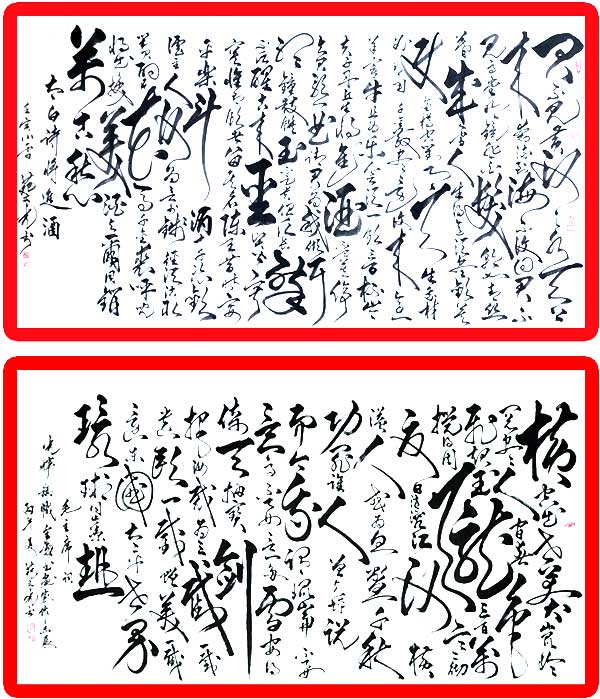 君不见黄河之水天上
来奔流到海不复回君不
见高堂明镜悲白发朝如青丝
暮成雪人生得意须尽欢莫
使金樽空对月天生我材
必有用千金散尽还复来烹
羊宰牛且为乐会须一饮三百杯岑
夫子丹丘生将进酒杯莫停
与君歌一曲请君为我倾耳
听钟鼓馔玉不足贵但愿长
醉不愿醒古来圣贤皆寂
寞惟有饮者留其名陈王昔时宴
平乐斗酒十千恣欢谑
主人何为言少钱径须沽取
对君酌五花马千金裘呼儿
将出换美酒与尔同销
萬古愁
太白诗将进酒
壬寅小雪
横空出世莽昆仑
阅尽人间春色
飞起玉龙三百萬
搅得周天寒彻
夏日消溶江河横
溢人或为鱼鳖千秋
功罪谁人曾与评说
而今我谓昆仑不要
这高不要这多雪安得
倚天抽宝剑
把汝裁为三截一截
遗欧一截赠美一截
还东国太平世界
環球同此凉热
毛主席词